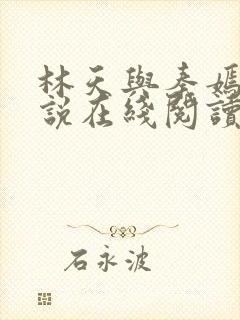 林天與秦嫣
說在綫閱讀
石永波